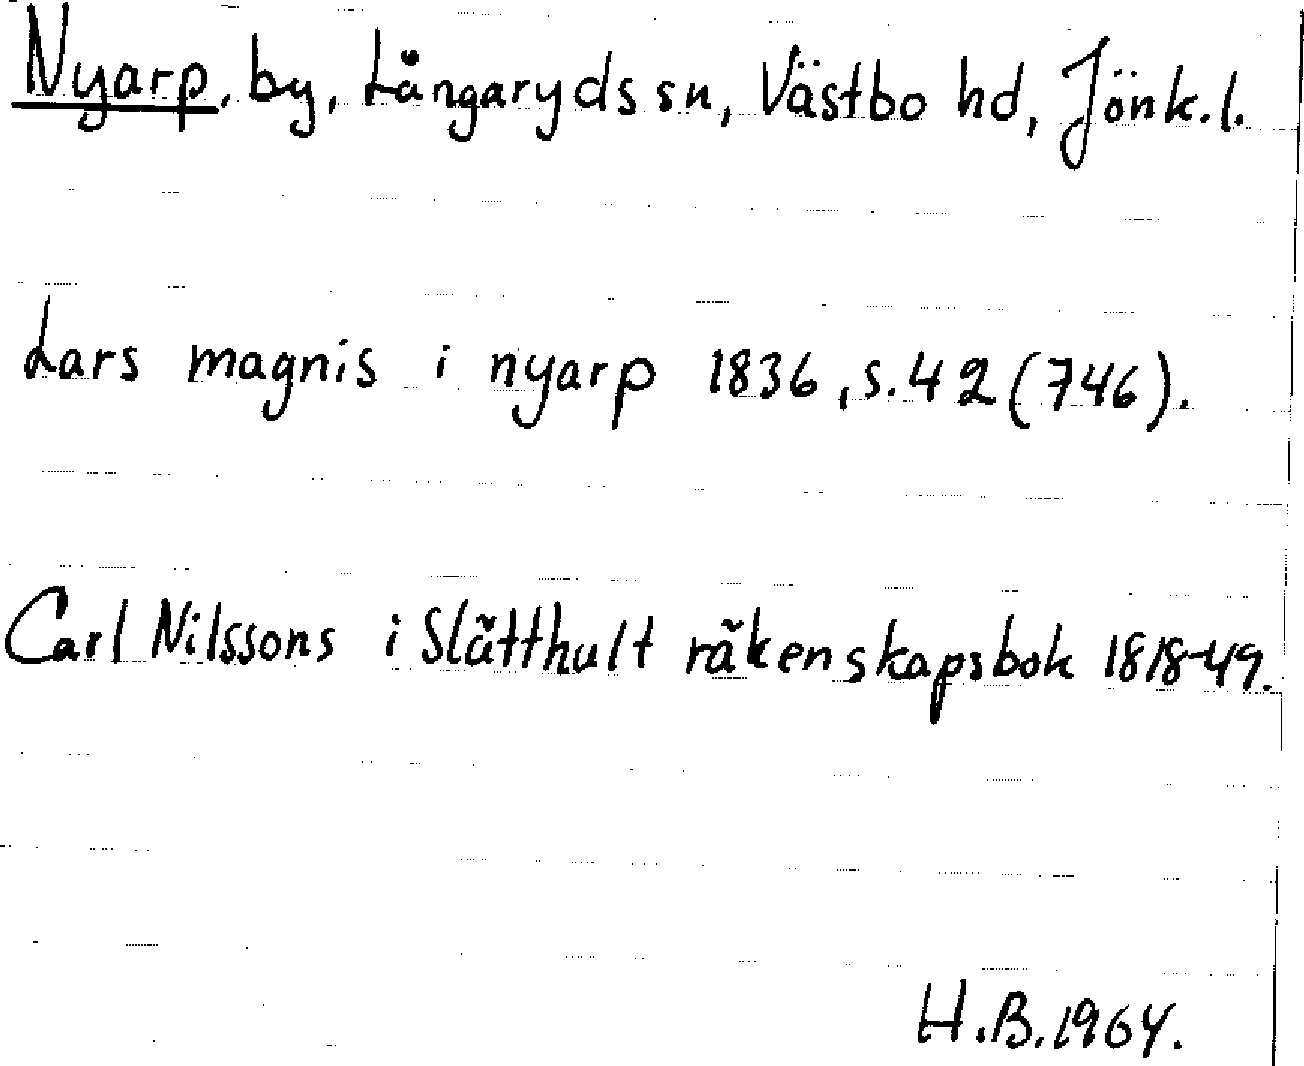 Nyarp, by, Långaryds sn, Västbo hd, Jönk. l.
Lars magnis i nyarp 1836, s. 42 (746).
Carl Nilssons i Slätthult räkenskapsbok 1818-49.
H.B. 1964.